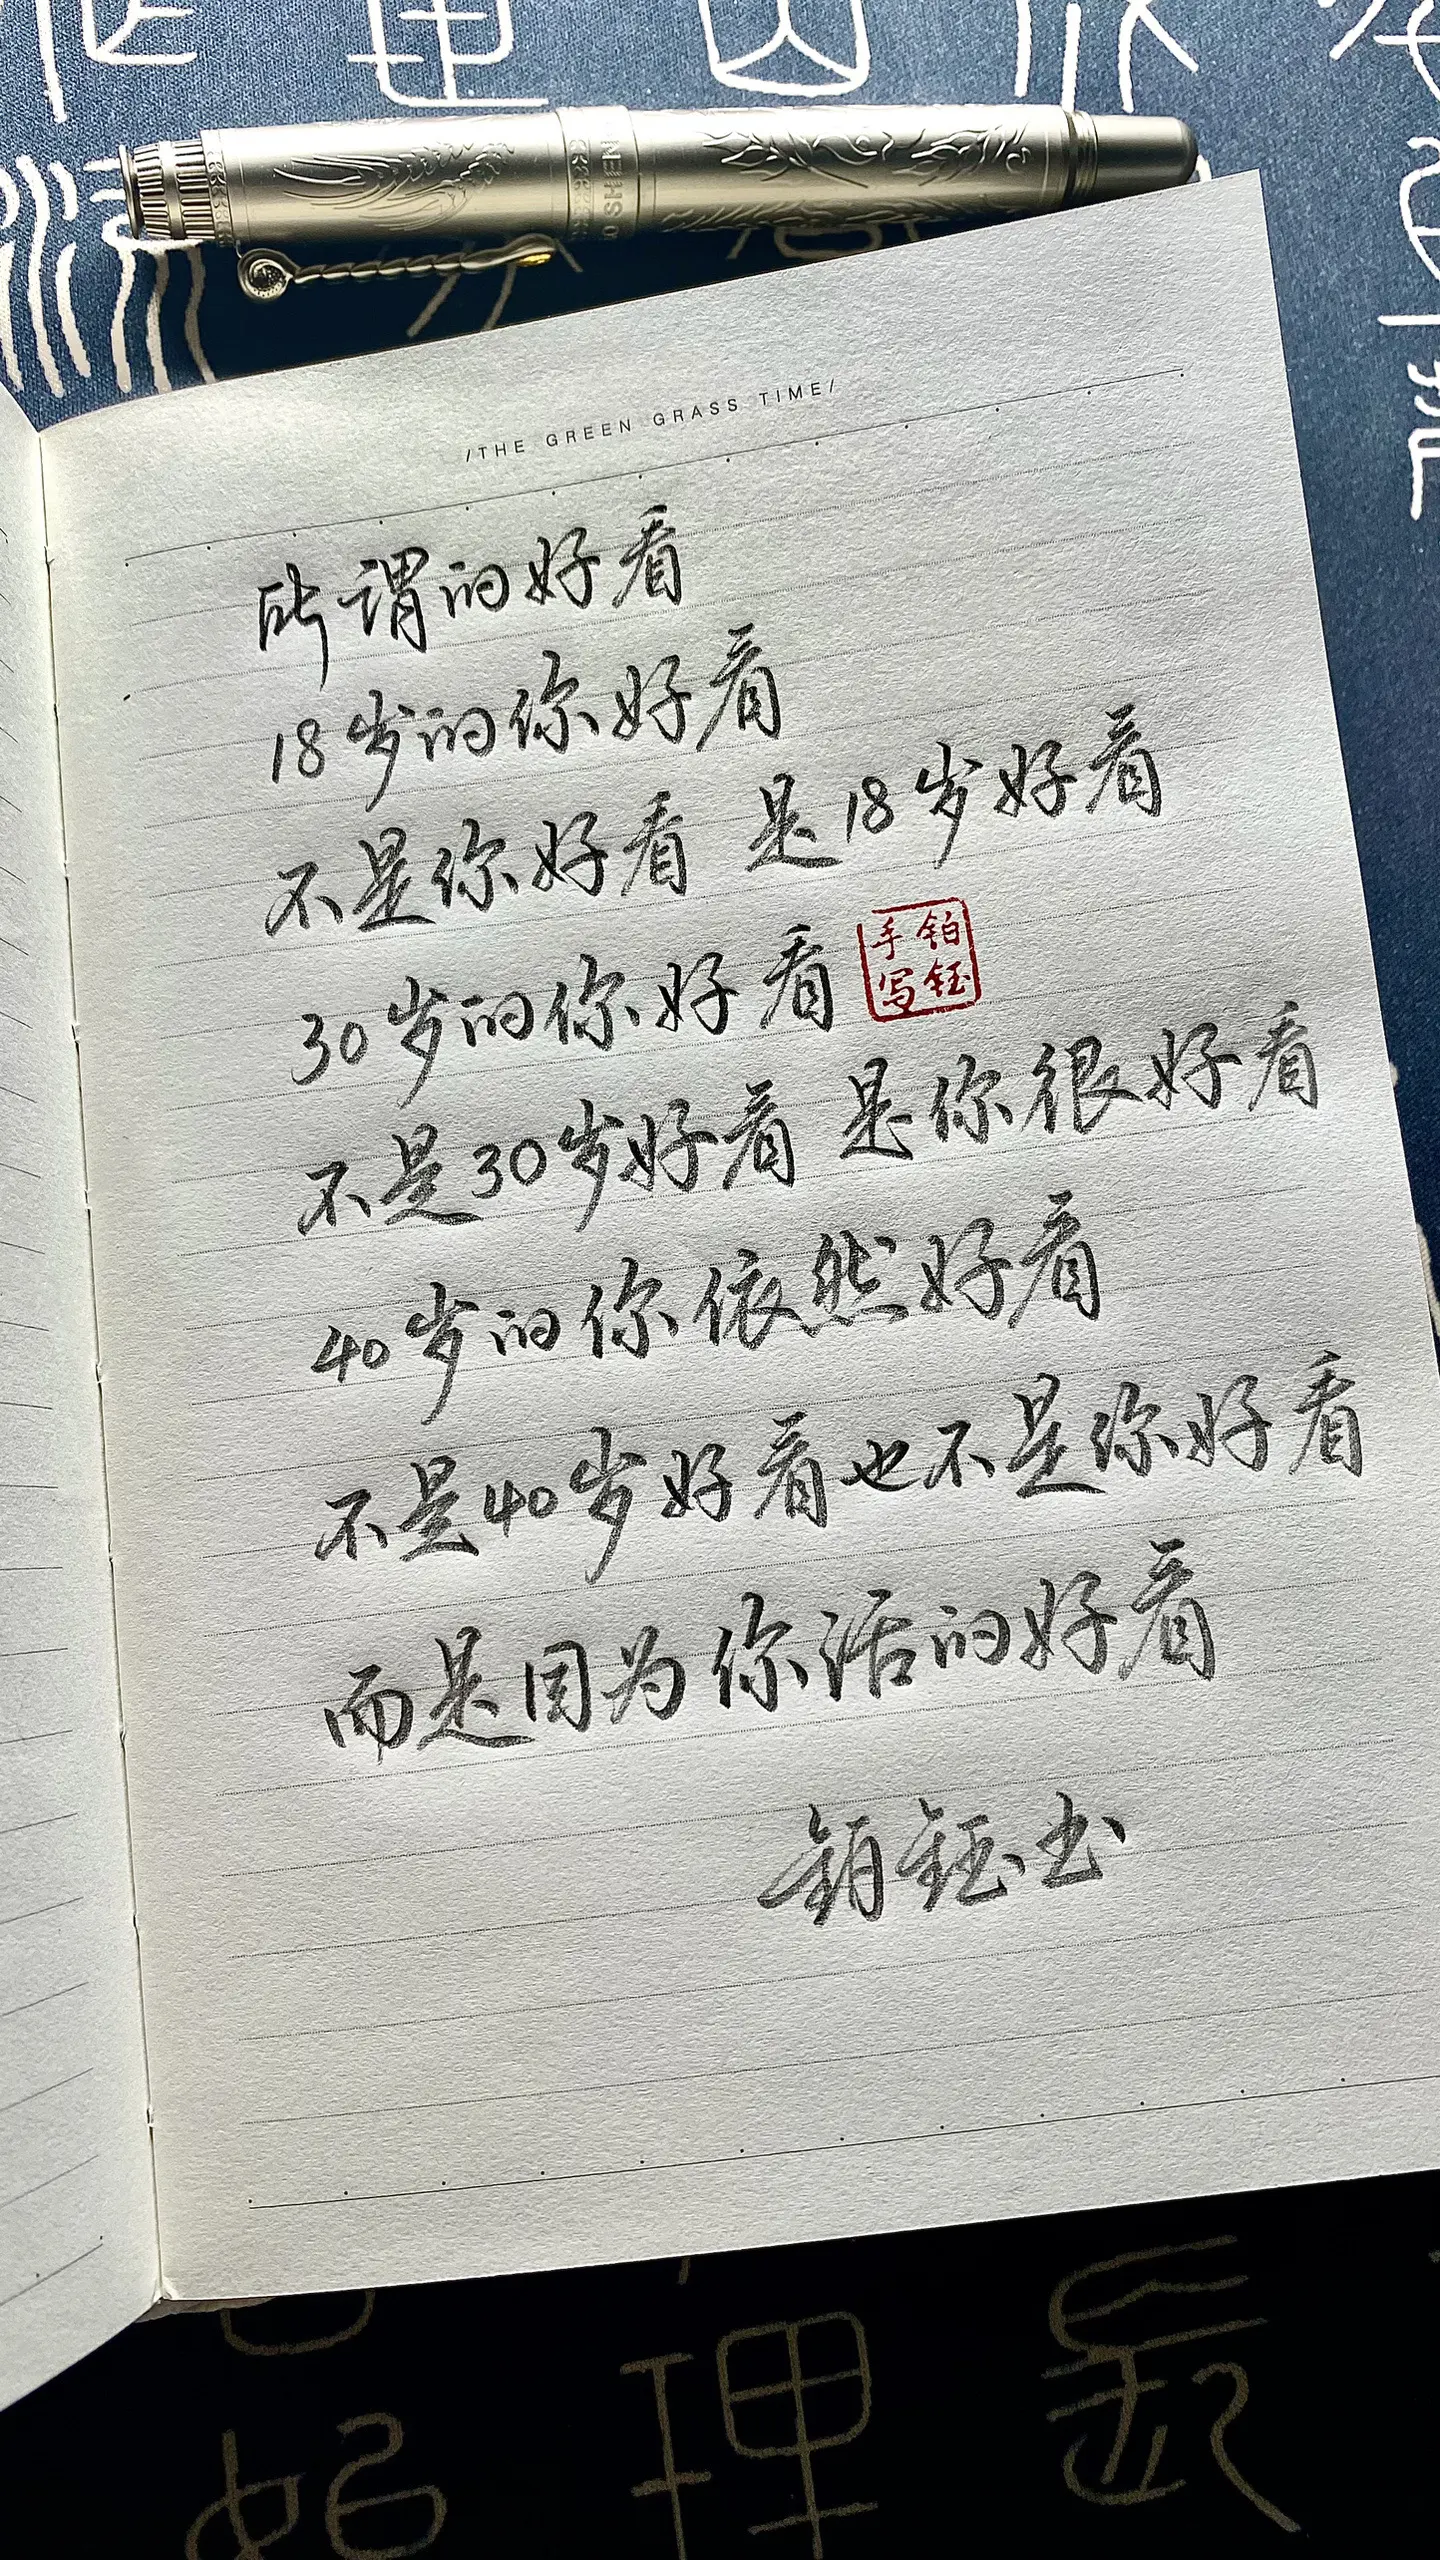 SHEN
/THE GREEN GRASS TIME/
所谓的好看
18岁的你好看
不是你好看 是18岁好看
30岁的你好看
铂钰
手写
不是30岁好看 是你很好看
40岁的你依然好看
不是40岁好看也不是你好看
而是因为你活的好看
铂钰书